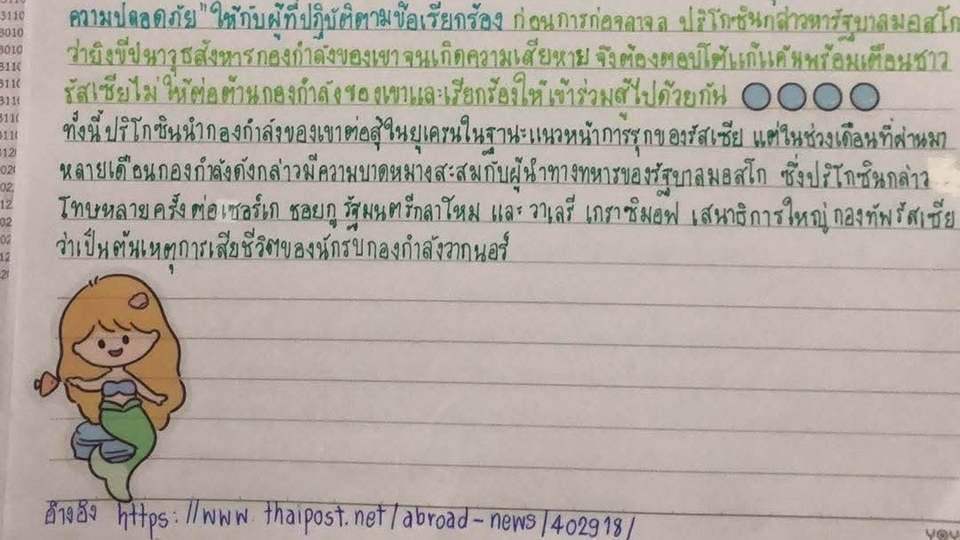 ความปลอดภัย" ให้กับผู้ที่ปฏิบัติตามข้อเรียกร้อง ก่อนการก่อจลาจล ปริโกซินกล่าวหารัฐบาลมอสโก
ว่ายิงขีปนาวุธสังหารกองกำลังของเขาจนเกิดความเสียหาย จึงต้องตอบโต้แก้แค้นพร้อมเตือนชาว
รัสเซียไม่ให้ต่อต้านกองกำลังของเขาและเรียกร้องให้เข้าร่วมสู้ไปด้วยกัน
ทั้งนี้ปริโกซินนำกองกำลังของเขาต่อสู้ในยูเครนในฐานะแนวหน้าการรุกของรัสเซีย แต่ในช่วงเดือนที่ผ่านมา
หลายเดือนกองกำลังดังกล่าวมีความบาดหมางสะสมกับผู้นำทางทหารของรัฐบาลมอสโก ซึ่งปริโกซินกล่าว
โทษหลายครั้งต่อเซอร์เก ชอยกู รัฐมนตรีกลาโหม และ วาเลรี เกราซิมอฟ เสนาธิการใหญ่กองทัพรัสเซีย
ว่าเป็นต้นเหตุการเสียชีวิตของนักรบกองกำลังวากเนอร์
อ้างอิง https://www.thaipost.net/abroad-news/402918/